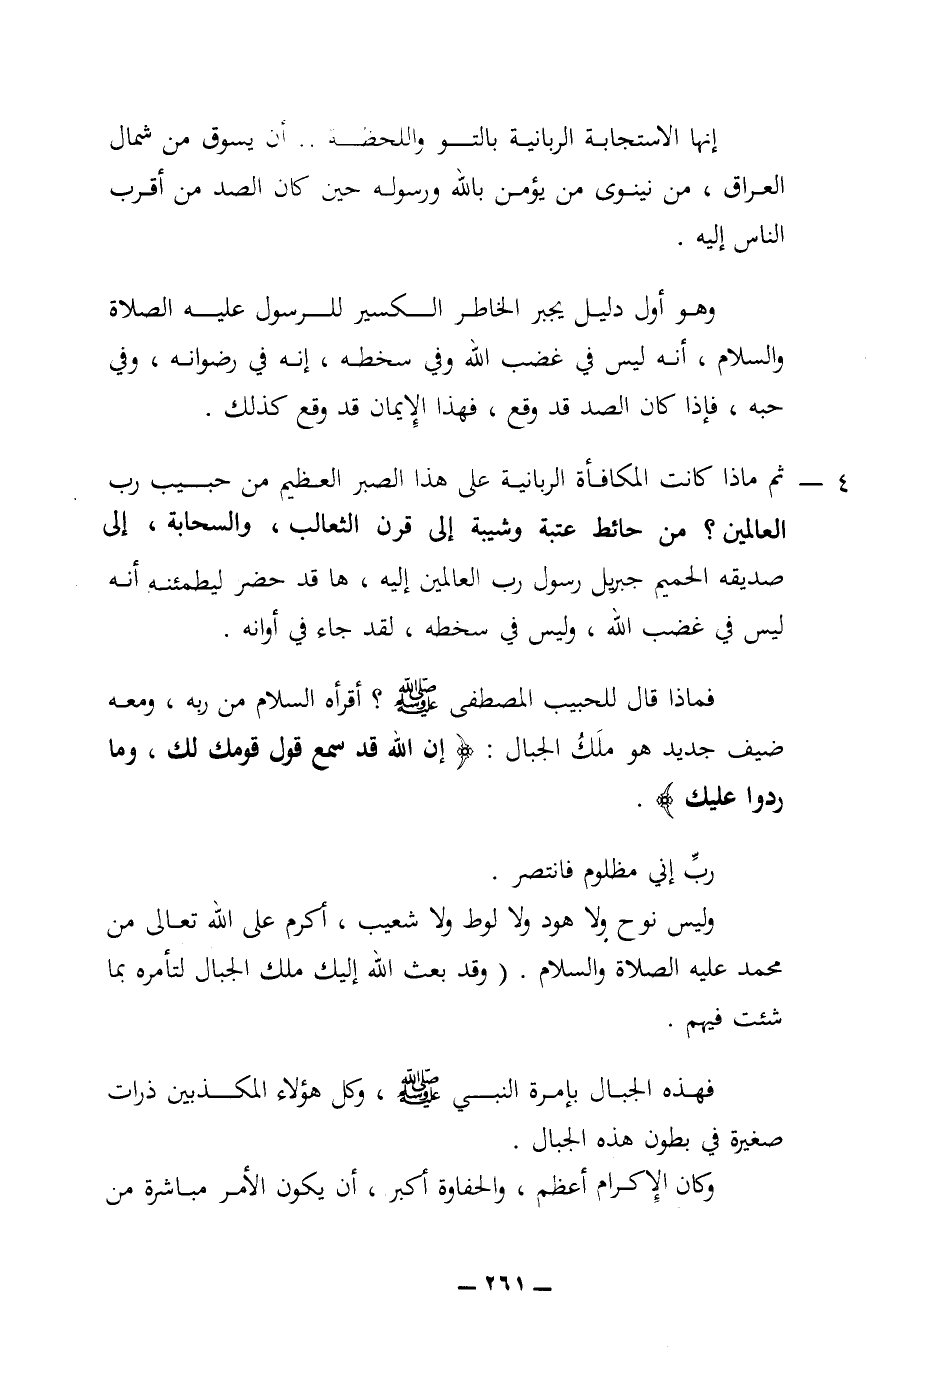 إنها الاستجابة الربانية بالتو واللحظة .. أن يسوق من شمال
العراق ، من نينوى من يؤمن بالله ورسوله حين كان الصد من أقرب
الناس إليه .
وهو أول دليل يجبر الخاطر الكسير للرسول عليه الصلاة
والسلام ، أنه ليس في غضب الله وفي سخطه ، إنه في رضوانه ، وفي
حبه ، فإذا كان الصد قد وقع ، فهذا الإيمان قد وقع كذلك .
٤ — ثم ماذا كانت المكافأة الربانية على هذا الصبر العظيم من حبيب رب
العالمين ؟ من حائط عتبة وشيبة إلى قرن الثعالب ، والسحابة ، إلى
صديقه الحميم جبريل رسول رب العالمين إليه ، ها قد حضر ليطمئنه أنه
ليس في غضب الله ، وليس في سخطه ، لقد جاء في أوانه .
فماذا قال للحبيب المصطفى ﷺ ؟ أقرأه السلام من ربه ، ومعه
ضيف جديد هو ملَكُ الجبال : ﴿ إن الله قد سمع قول قومك لك ، وما
ردوا عليك ﴾ .
ربِّ إني مظلوم فانتصر .
وليس نوح ولا هود ولا لوط ولا شعيب ، أكرم على الله تعالى من
محمد عليه الصلاة والسلام . ( وقد بعث الله إليك ملك الجبال لتأمره بما
شئت فيهم .
فهذه الجبال بإمرة النبي ﷺ ، وكل هؤلاء المكذبين ذرات
صغيرة في بطون هذه الجبال .
وكان الإكرام أعظم ، والحفاوة أكبر ، أن يكون الأمر مباشرة من
— ٢٦١ —